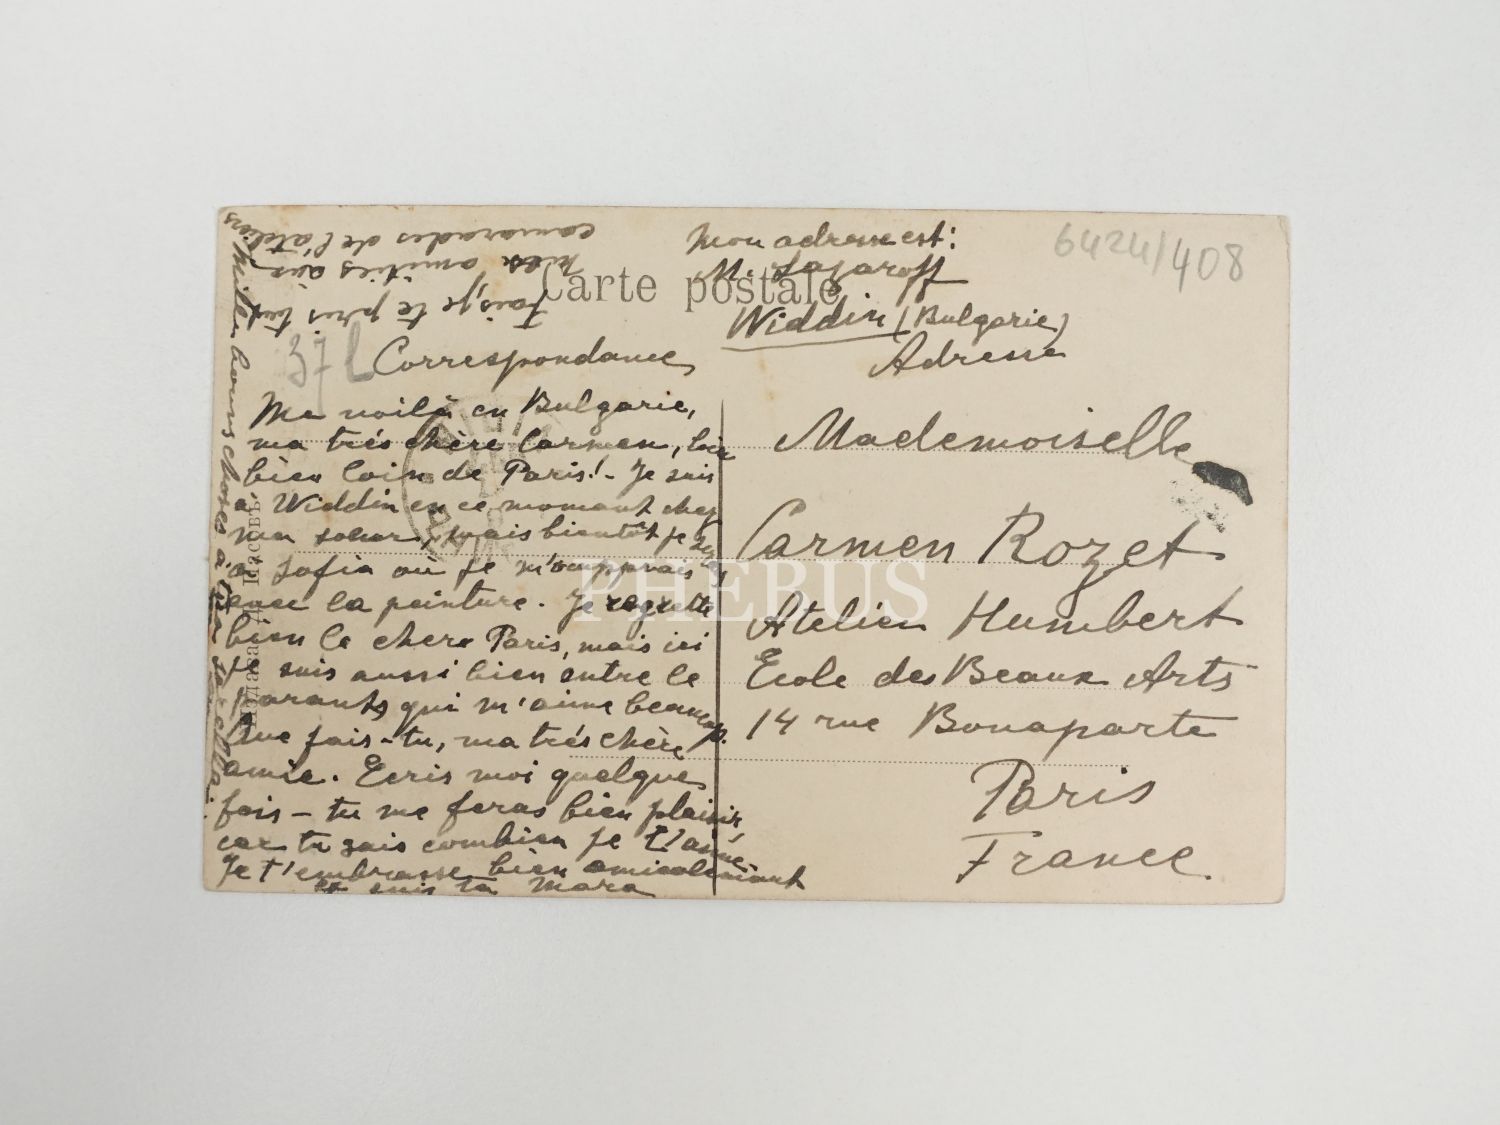 Mon adresse est:
M. Lazaroff
Widdin (Bulgarie)
6424/408
Carte postale
Fais, je te prie tout
mes amitiés aux
camarades de l'atelier
37L
Correspondance
Adresse
Me voilà en Bulgarie,
ma très chère Carmen, bien
bien loin de Paris! - Je suis
à Widdin en ce momant chez
ma soeur, mais bientôt je
à Sofia où je m'
avec la peinture. Je regrette
bien le chere Paris, mais ici
je suis aussi bien entre le
parants qui m'aime beaucoup.
Que fais-tu, ma très chère
amie. Ecris moi quelque
fois - tu me feras bien plaisir,
car tu sais combien je t'aime
Je t'embrasse bien amicalemant
et suis ta Mara
Mille bonnes choses à ta
Mademoiselle
Carmen Rozet
Atelier Humbert
Ecole des Beaux Arts
14 rue Bonaparte
Paris
France
PHEBUS